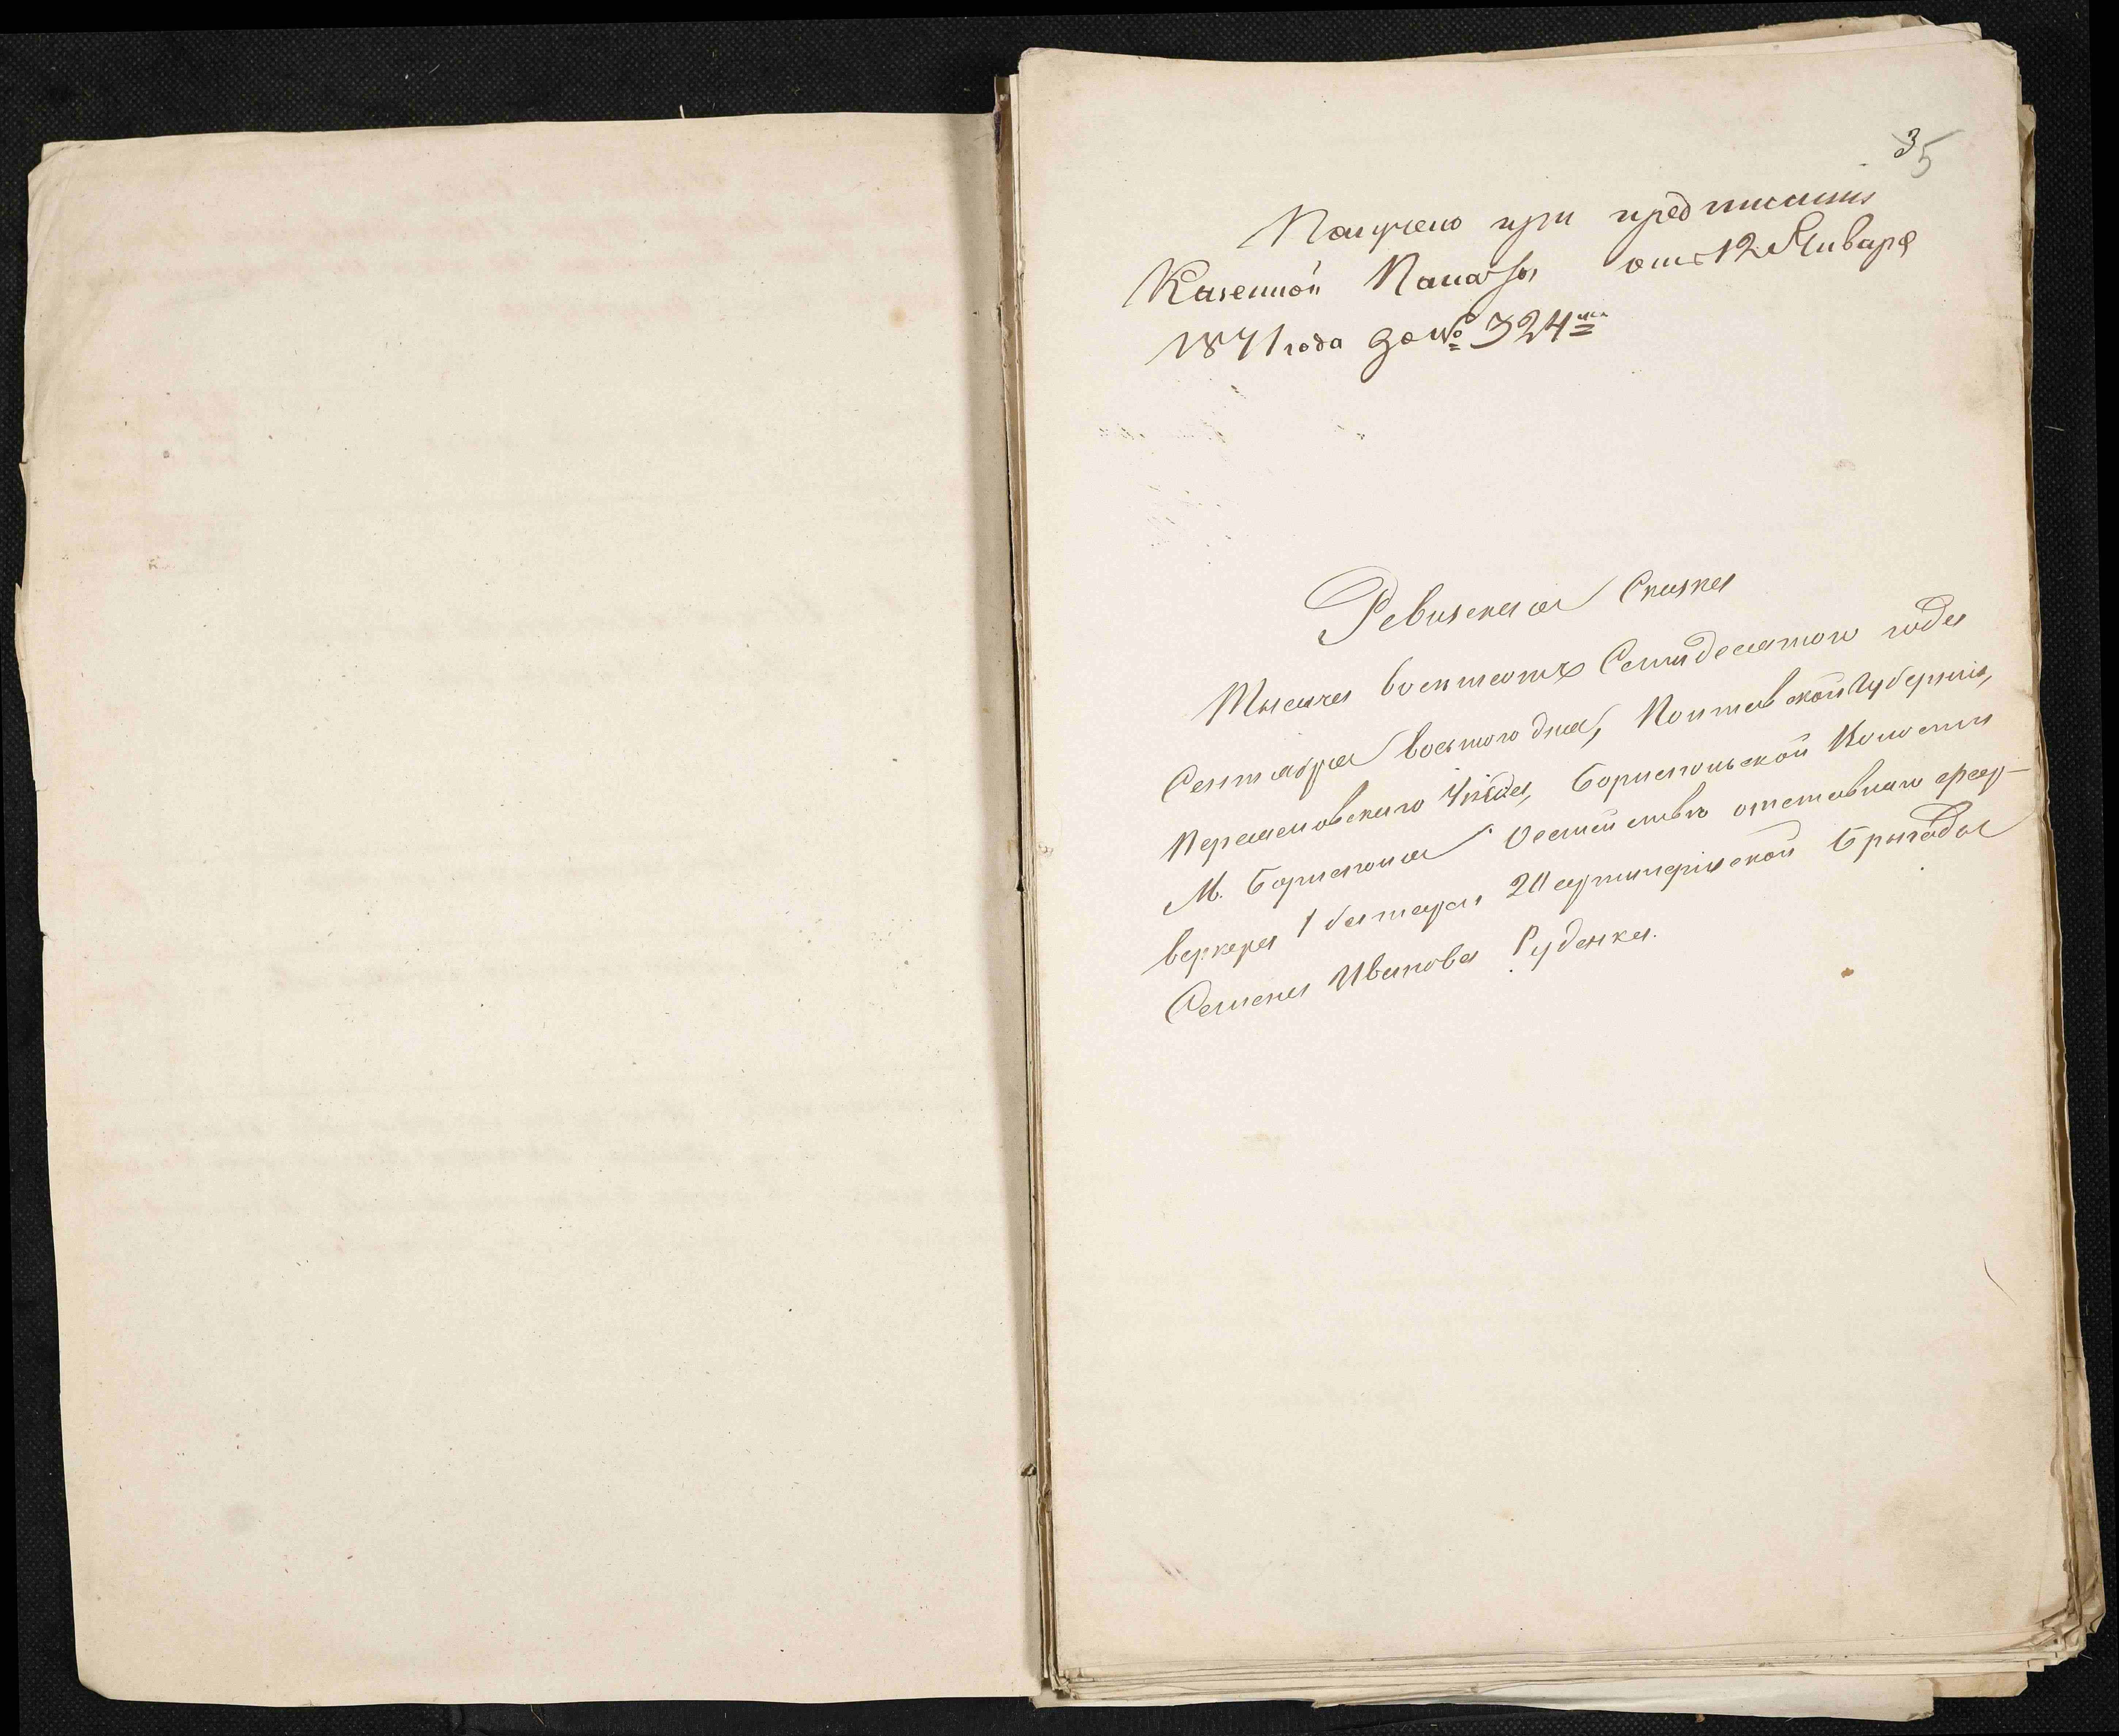 35
Получено при предписании
Казенной Палаты от 12 Января
1871 года за № 324
Ревизская Сказка
Тысяча восемсотъ Семидесятого года
Сентября восьмого дня, Полтавской Губерніи,
Переяславского Уѣзда, Бориспольской Волости
М. Борисполя Семейство отставнаго феер-
веркера 1 батареи 20 артилерійской Брыгады
Семена Иванова Руденка.